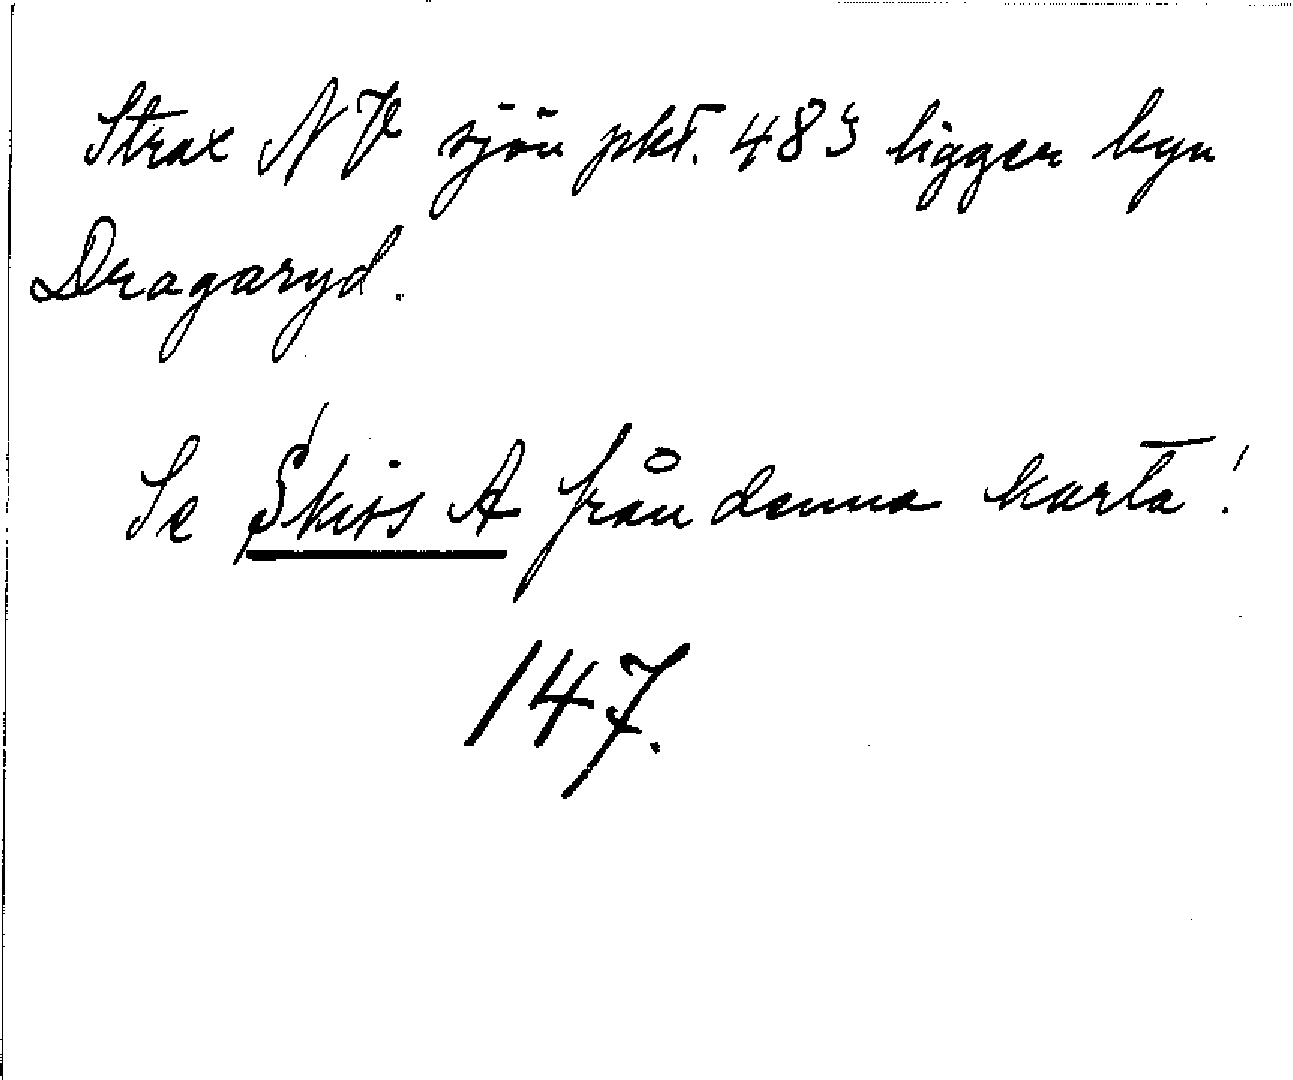 Strax NV sjön pkt. 483 ligger byn
Dragaryd.
Se Skiss A från denna karta!
147.